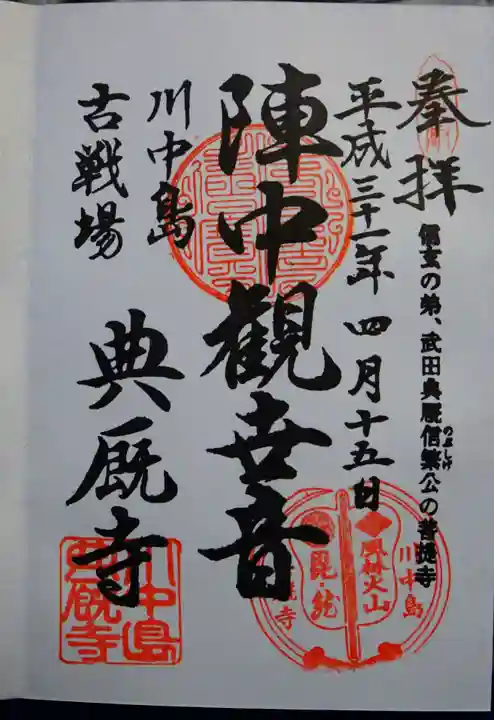 奉拝
信玄の弟、武田典厩信繁公の菩提寺
のぶしげ
平成三十一年四月十五日
陣中観世音
川中島
古戦場
典厩寺
川中島
風林火山
毘・龍
川中島
典厩寺